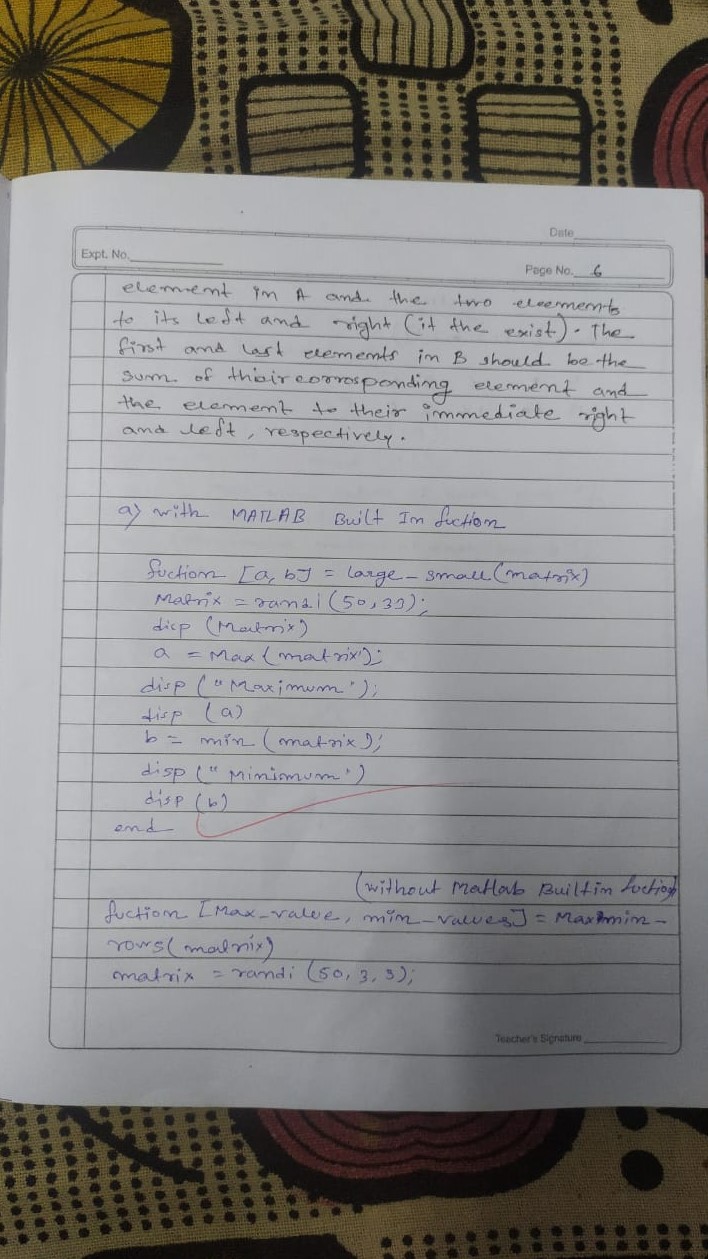 Date
Expt. No.
Page No. 6
element in A and the two eleements
to its left and right (it the exist). The
first and last elements in B should be the
sum of thbir corrosponding element and
the element to their immediate right
and left, respectively.
a) with MATLAB Built In fuction
fuction [a, b] = large_small(matrix)
Matrix = randi(50,33);
disp (Matrix)
a = Max(matrix');
disp ("Maximum');
disp (a)
b = min (matrix');
disp ("Minimum')
disp (b)
end
(without Matlab Builtin fuction)
fuction [Max_value, min_values] = Maxmin-
rows(matrix)
matrix = randi (50, 3, 3);
Teacher's Signature